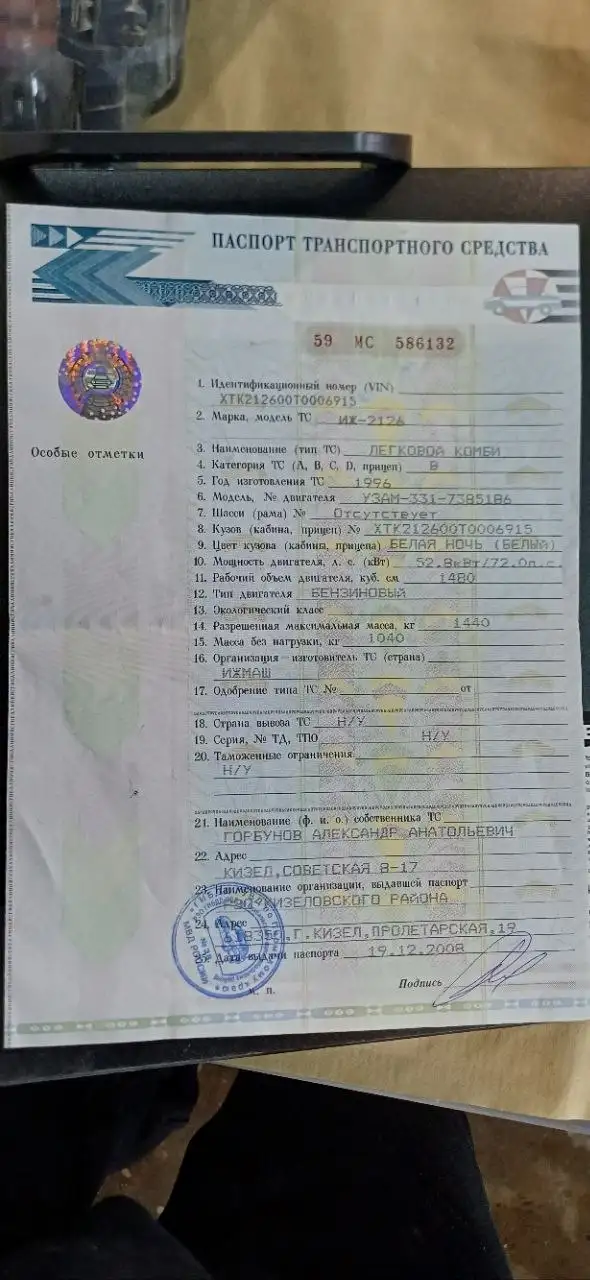 ПАСПОРТ ТРАНСПОРТНОГО СРЕДСТВА
59 МС 586132
Особые отметки
1. Идентификационный номер (VIN)
XTK212600T0006915
2. Марка, модель ТС ИЖ-2126
3. Наименование (тип ТС) ЛЕГКОВОЙ КОМБИ
4. Категория ТС (А, В, С, D, прицеп) В
5. Год изготовления ТС 1996
6. Модель, № двигателя УЗАМ-331-7385186
7. Шасси (рама) № Отсутствует
8. Кузов (кабина, прицеп) № XTK212600T0006915
9. Цвет кузова (кабины, прицепа) БЕЛАЯ НОЧЬ (БЕЛЫЙ)
10. Мощность двигателя, л. с. (кВт) 52.8кВт/72.0л.с.
11. Рабочий объем двигателя, куб. см 1480
12. Тип двигателя БЕНЗИНОВЫЙ
13. Экологический класс
14. Разрешенная максимальная масса, кг 1440
15. Масса без нагрузки, кг 1040
16. Организация - изготовитель ТС (страна)
ИЖМАШ
17. Одобрение типа ТС № от
18. Страна вывоза ТС Н/У
19. Серия, № ТД, ТПО Н/У
20. Таможенные ограничения
Н/У
21. Наименование (ф. и. о.) собственника ТС
ГОРБУНОВ АЛЕКСАНДР АНАТОЛЬЕВИЧ
22. Адрес
КИЗЕЛ,СОВЕТСКАЯ 8-17
23. Наименование организации, выдавшей паспорт
КИЗЕЛОВСКОГО РАЙОНА
24. Адрес Г.КИЗЕЛ,ПРОЛЕТАРСКАЯ,19
25. Дата выдачи паспорта 19.12.2008
Подпись
М. П.